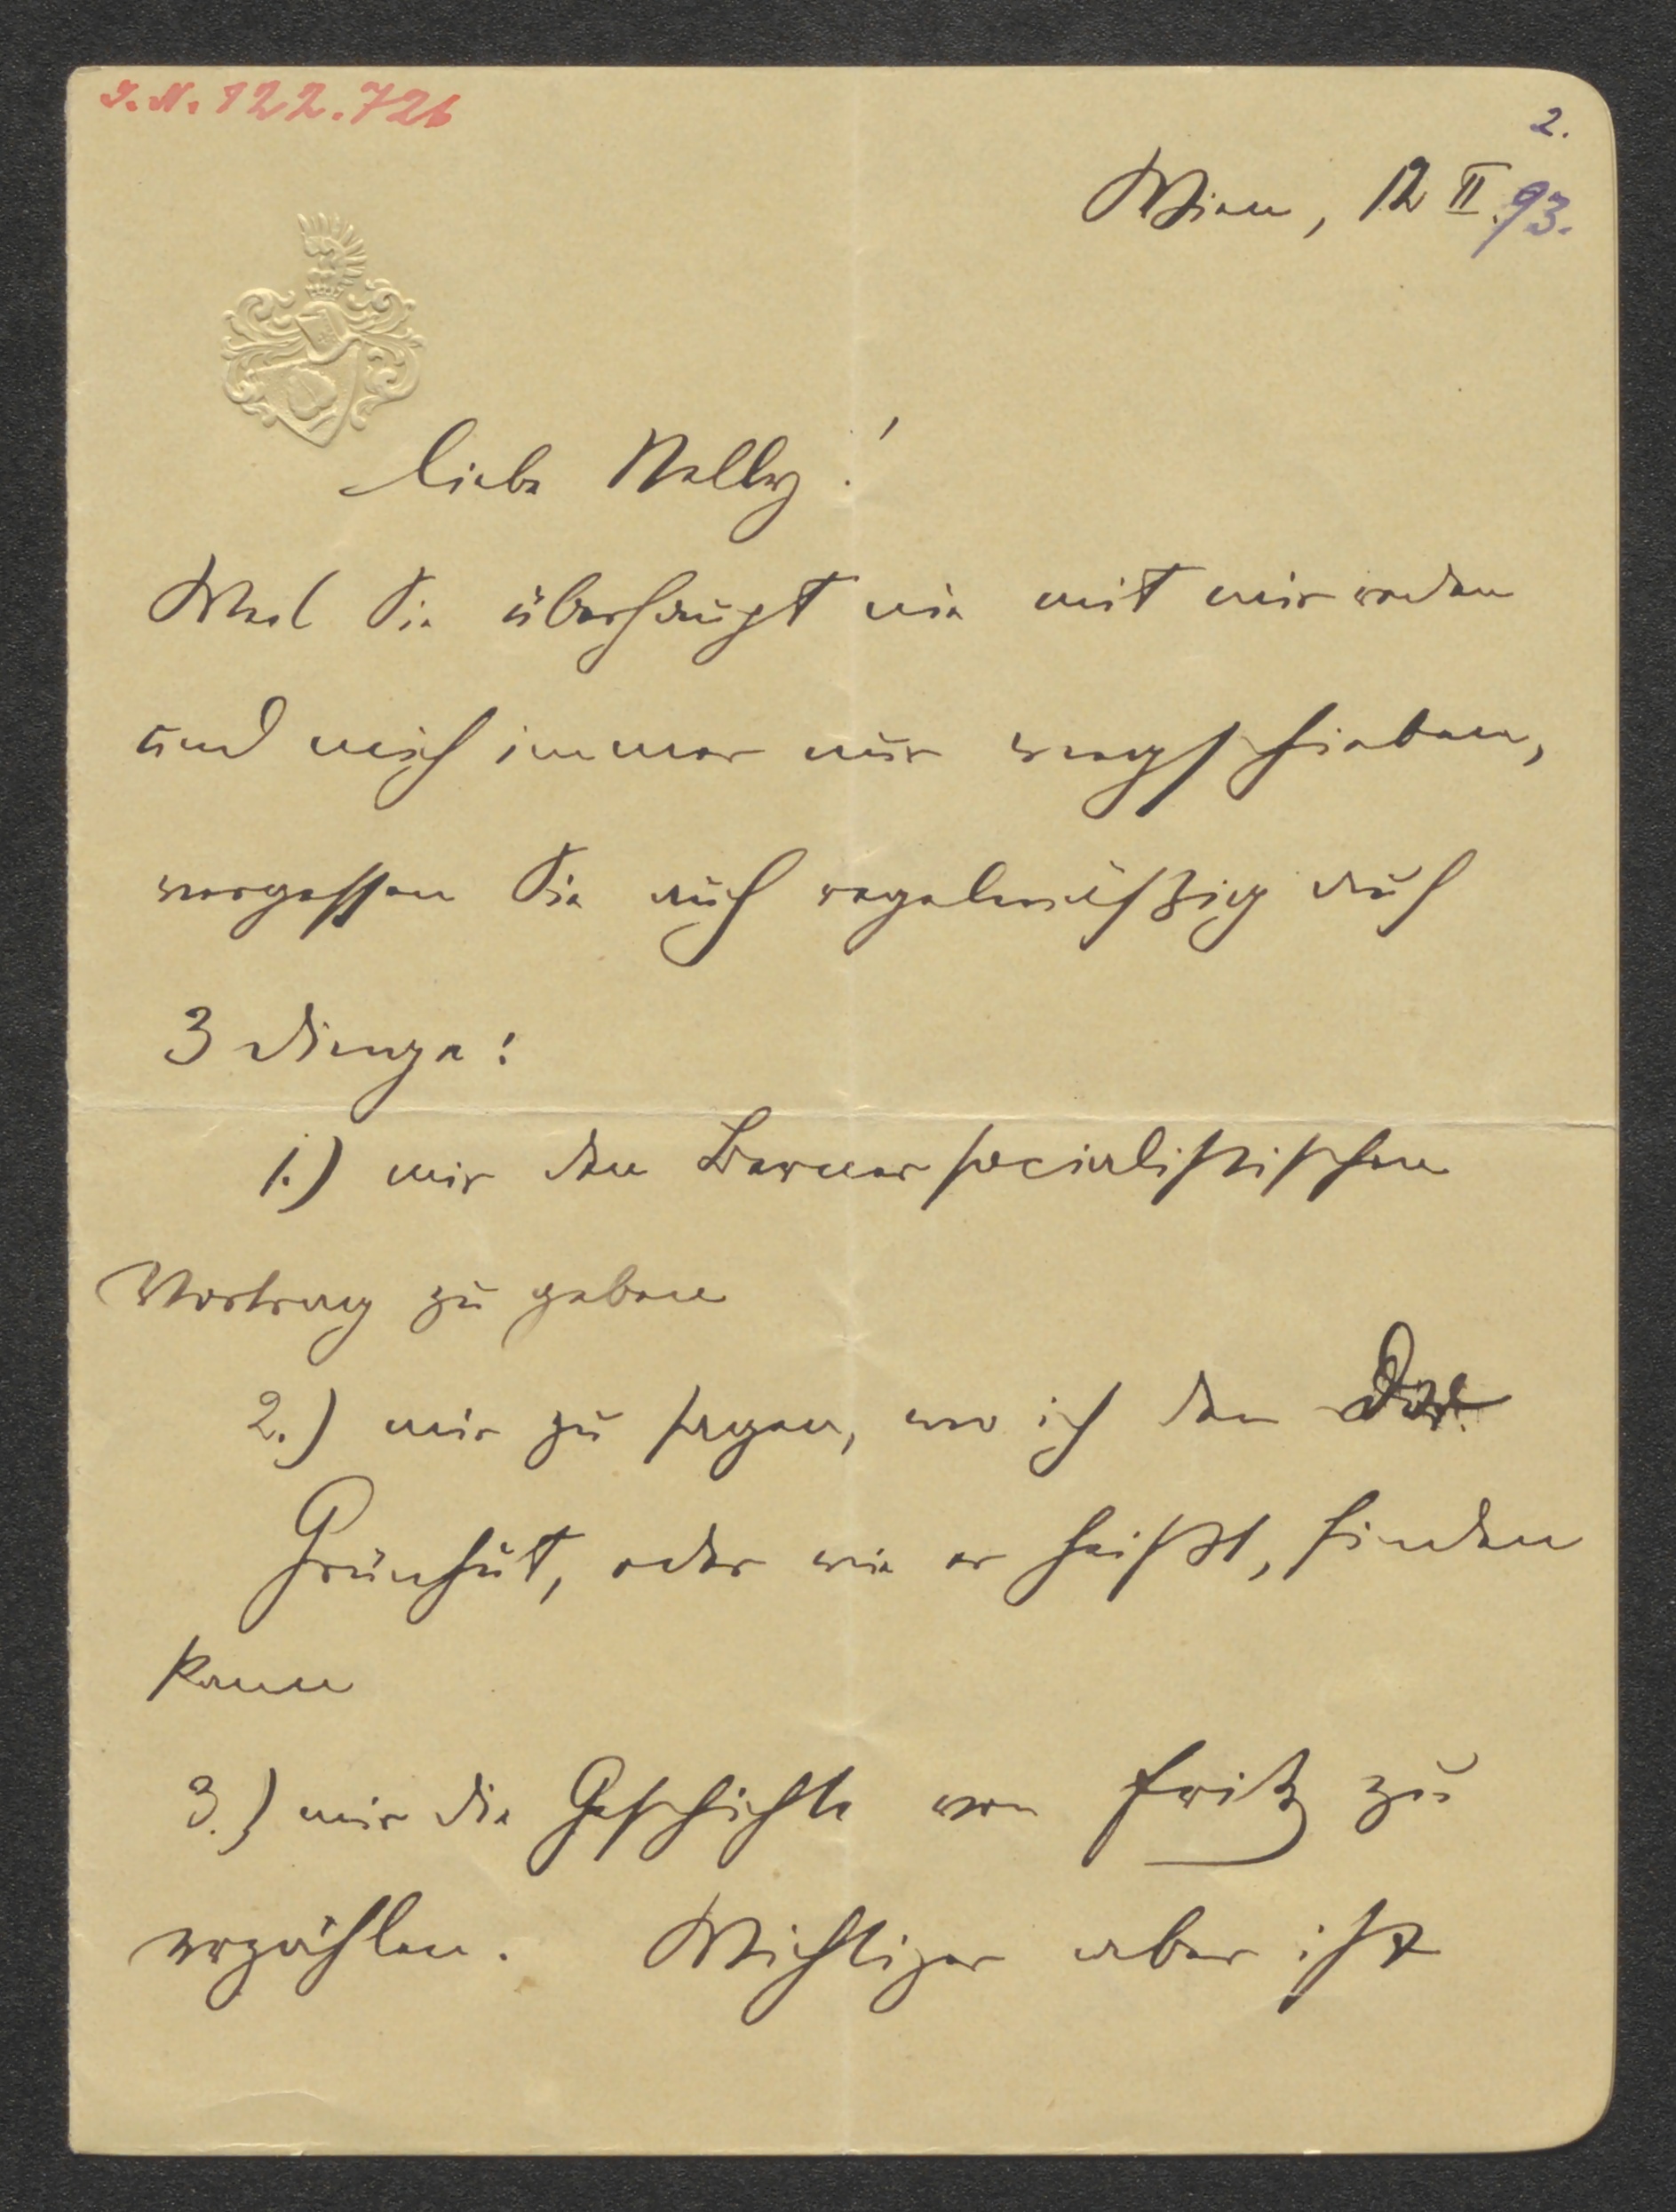 I. N. 122.726
2.
Wien, 12 II. 93.
Liebe Nelly!
Weil Sie überhaupt nie mit mir reden
und mich immer nur wegschieben,
vergessen Sie auch regelmäßig auf
3 Dinge:
1.) mir den Berner socialistischen
Vortrag zu geben
2.) mir zu sagen, wo ich den
Grünhut, oder wie er heißt, finden
kann
3.) mir die Geschichte von Fritz zu
erzählen. Wichtiger aber ist